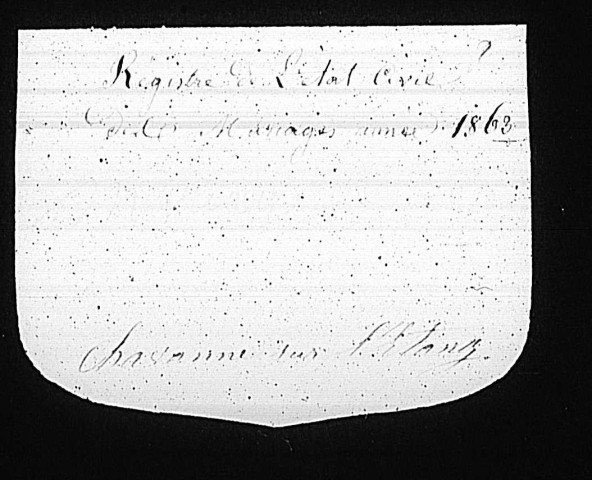 Registre de L'Etat Civil
des Mariages année 1863
Chavanne sur l'Etang